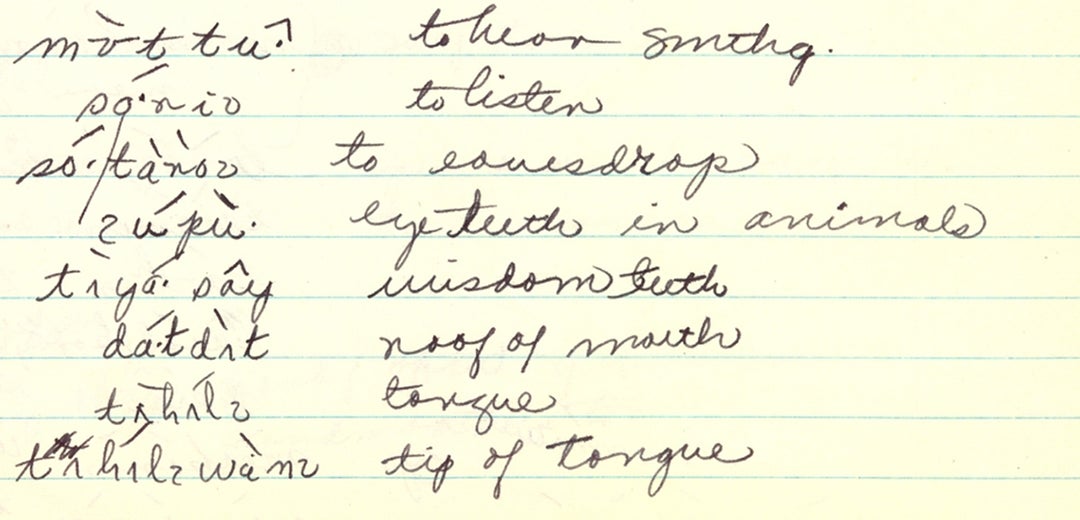 mò·t tu·ˀ to hear smthg.
sǫ́·nìɔ to listen
só·/tàǹoɂ to eavesdrop
ɂúpù· eye teeth in animals
tìyá· sây wisdom teeth
dá·tdìt roof of mouth
tìhílɂ tongue
tìhílɂwànɂ tip of tongue